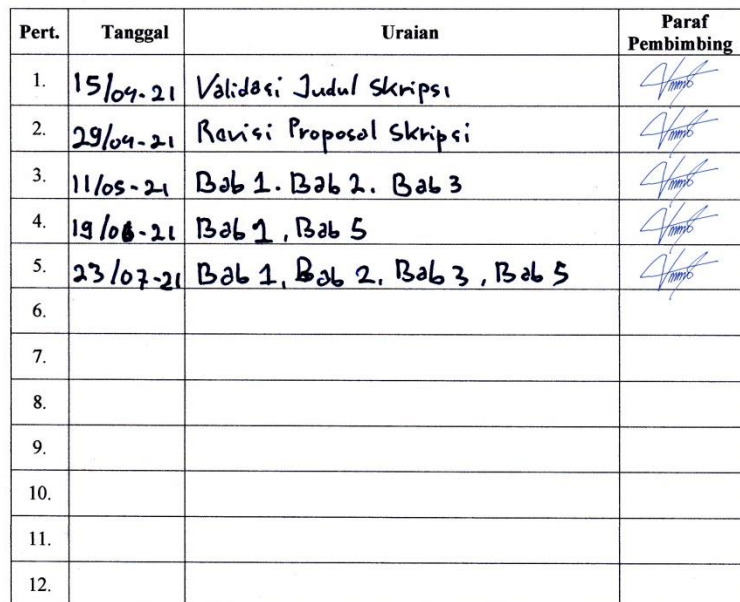 Pert. Tanggal Uraian Paraf Pembimbing
1. 15/04-21 Validasi Judul Skripsi
2. 29/04-21 Revisi Proposal Skripsi
3. 11/05-21 Bab 1. Bab 2. Bab 3
4. 19/06-21 Bab 1, Bab 5
5. 23/07-21 Bab 1, Bab 2, Bab 3, Bab 5
6.
7.
8.
9.
10.
11.
12.